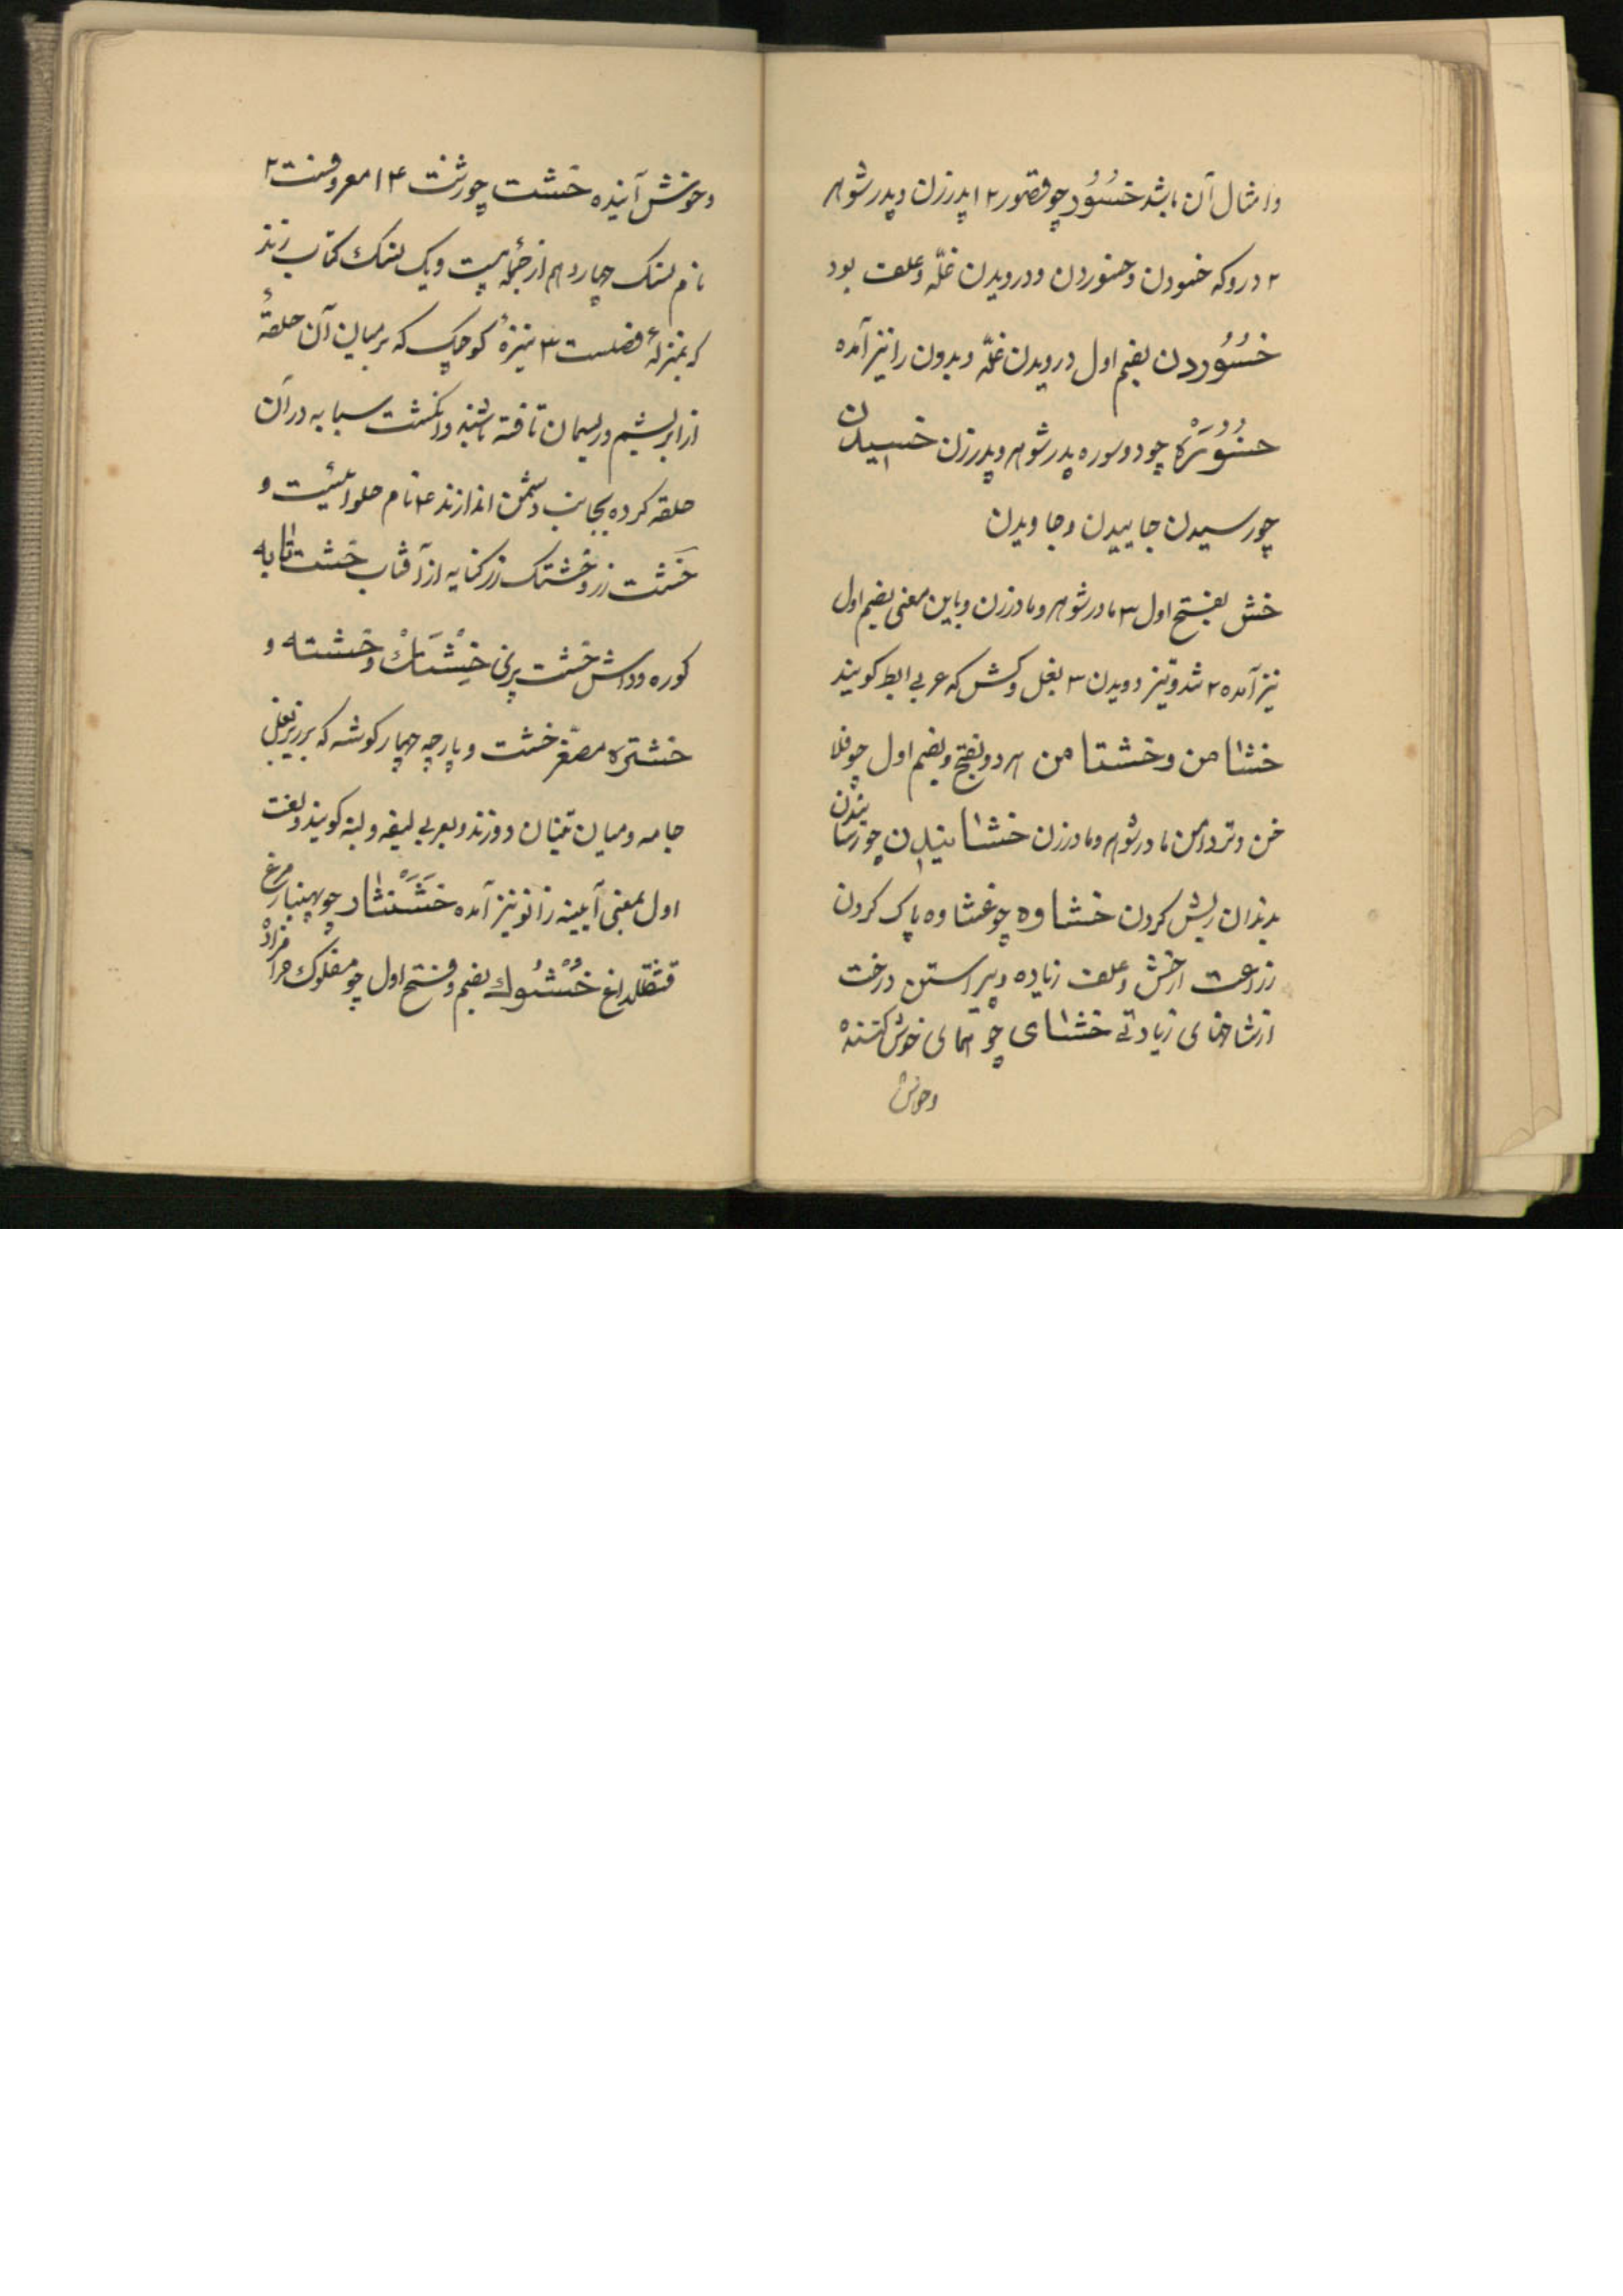 وامثال آن باشد خُسُوُر چو قصور ۲ ۱ پدرزن و پدر شوهر
۲ درو که خسودن و خسوردن و درویدن غلّه و علف بود
خُسُوُردن بضم اول درویدن غلّه و بدون را نیز آمده
خسُوُرَهْ چو دوسوره پدر شوهر و پدرزن خسیدن
چو رسیدن جاییدن و جاویدن
خش بفتح اول ۳ مادر شوهر و مادرزن و باین معنی بضم اول
نیز آمده ۲ تند و تیز دویدن ۳ بغل و کش که عربی ابط کویند
خشامن و خشتامن هر دو بفتح و بضم اول چو فلا
خن و تردامن مادر شوهر و مادرزن خشانیدن چو رسانیدن
بدندان ریش کردن خشاوه چو غشاوه پاک کردن
زراعت از خش و علف زیاده و پیراستن درخت
از شاخهای زیادتی خشای چو همای خوش کننده
وخوش
وخوش آینده خشت چو رشت ۴ ۱ معروفست ۲
نام نسک چهاردهم از جملهٔ بیست و یک نسک کتاب زند
که بمنزلهٔ فصلست ۳ نیزهٔ کوچک که بر میان آن حلقهٔ
از ابریشم و ریسمان تافته باشند و انکشت سبابه در آن
حلقه کرده بجانب دشمن اندازند ۴ نام حلوائیست و
خشت زر و خشتک زر کنایه از آفتاب خشت تابه
کوره و داش خشت پزی خِشْتَكْ و خشته و
خشتره مصغّر خشت و پارچه چهار کوشه که بر زیر بغل
جامه و میان تنبان دوزند و بعربی لیفه و لبنه کویند و بفت
اول بمعنی آیینه زانو نیز آمده خَشَنْشَار چو بهنبار مرغ
قشقلداغ خُشُوك بضم و فتح اول چو مفلوک حرامزادهْ